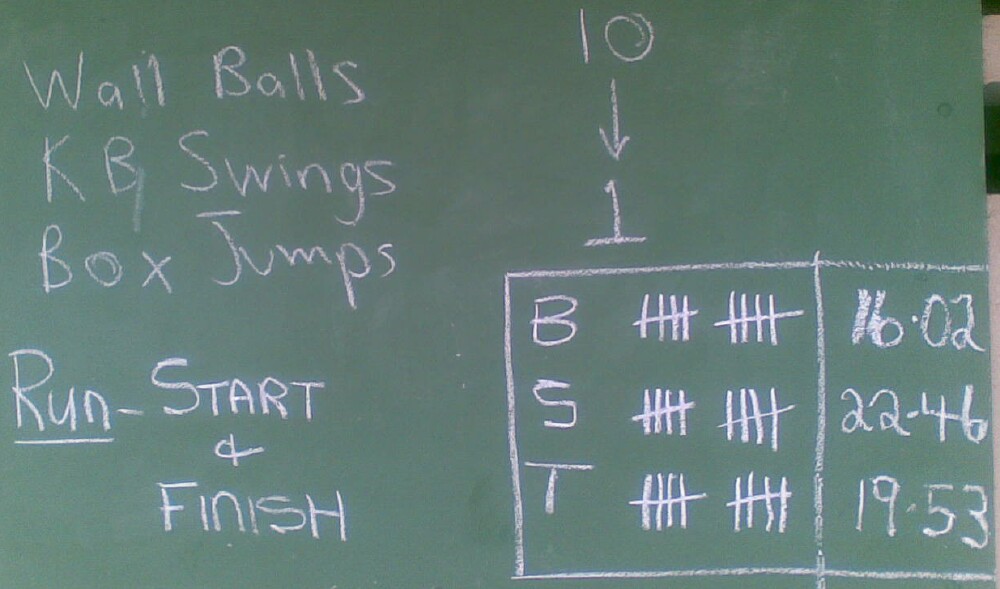 Wall Balls
KB Swings
Box Jumps
Run - START
&
FINISH
10
↓
1
B 𝍸 𝍸 16.02
S 𝍸 𝍸 22.46
T 𝍸 𝍸 19.53